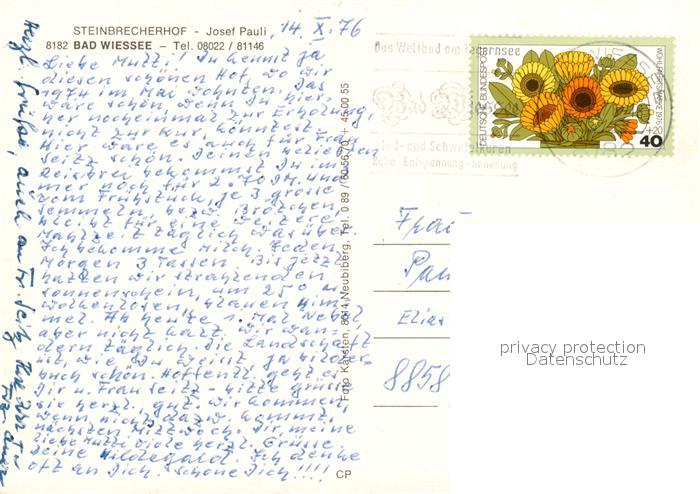 STEINBRECHERHOF - Josef Pauli
8182 BAD WIESSEE - Tel. 08022 / 81146
14. X. 76
Liebe Mutti! Du kennst ja
diesen schönen Hof, wo wir
1974 im Mai wohnten. Das
wäre schön, wenn Du hier-
her nocheinmal zur Erholung,
nicht zur Kur könntest.
Hier wäre es auch für Frau
Seitz schön. Deinen
Reisbrei bekommst Du im-
mer noch für 2.70 DM und
vom Frühstück, je 3 grosse
Semmeln, bezw. Brötchen
bleibt für eine weitere
Mahlzeit täglich was über.
Ich bekomme Milch. Jeden
Morgen 3 Tassen. Bis jetzt
hatten wir strahlenden
Sonnenschein, um 25°
wolkenlosen, blauen Him-
mel. Ab heute 1. Mal Nebel,
aber nicht kalt. Wir wan-
dern täglich. Die Landschaft
ist, wie Du weisst, ja bilder-
buch schön. Hoffentl. geht es
Dir u. Frau Seitz - bitte grüsse
sie herzl. gut. Wir kommen,
wenn nichts dazw. kommt,
nächsten Mittwoch. Dir, meine
liebe Mutti viele herzl. Grüsse
Deine Hildegard. Ich denke
oft an Dich. Schone Dich!!!!
Herzl. Grüße, auch an Fr. Seitz
Foto Karsten, 8014 Neubiberg, Tel. 0 89 / 60 56 70 + 45 00 55
CP
Das Weltbad am Tegernsee
Bad Wiessee
Jod- und Schwefelkuren
Ruhe Entspannung Genesung
DEUTSCHE BUNDESPOST
WOHLFAHRTSMARKE 1976
+20
40
Frau
Pau
Elias
8858
privacy protection
Datenschutz